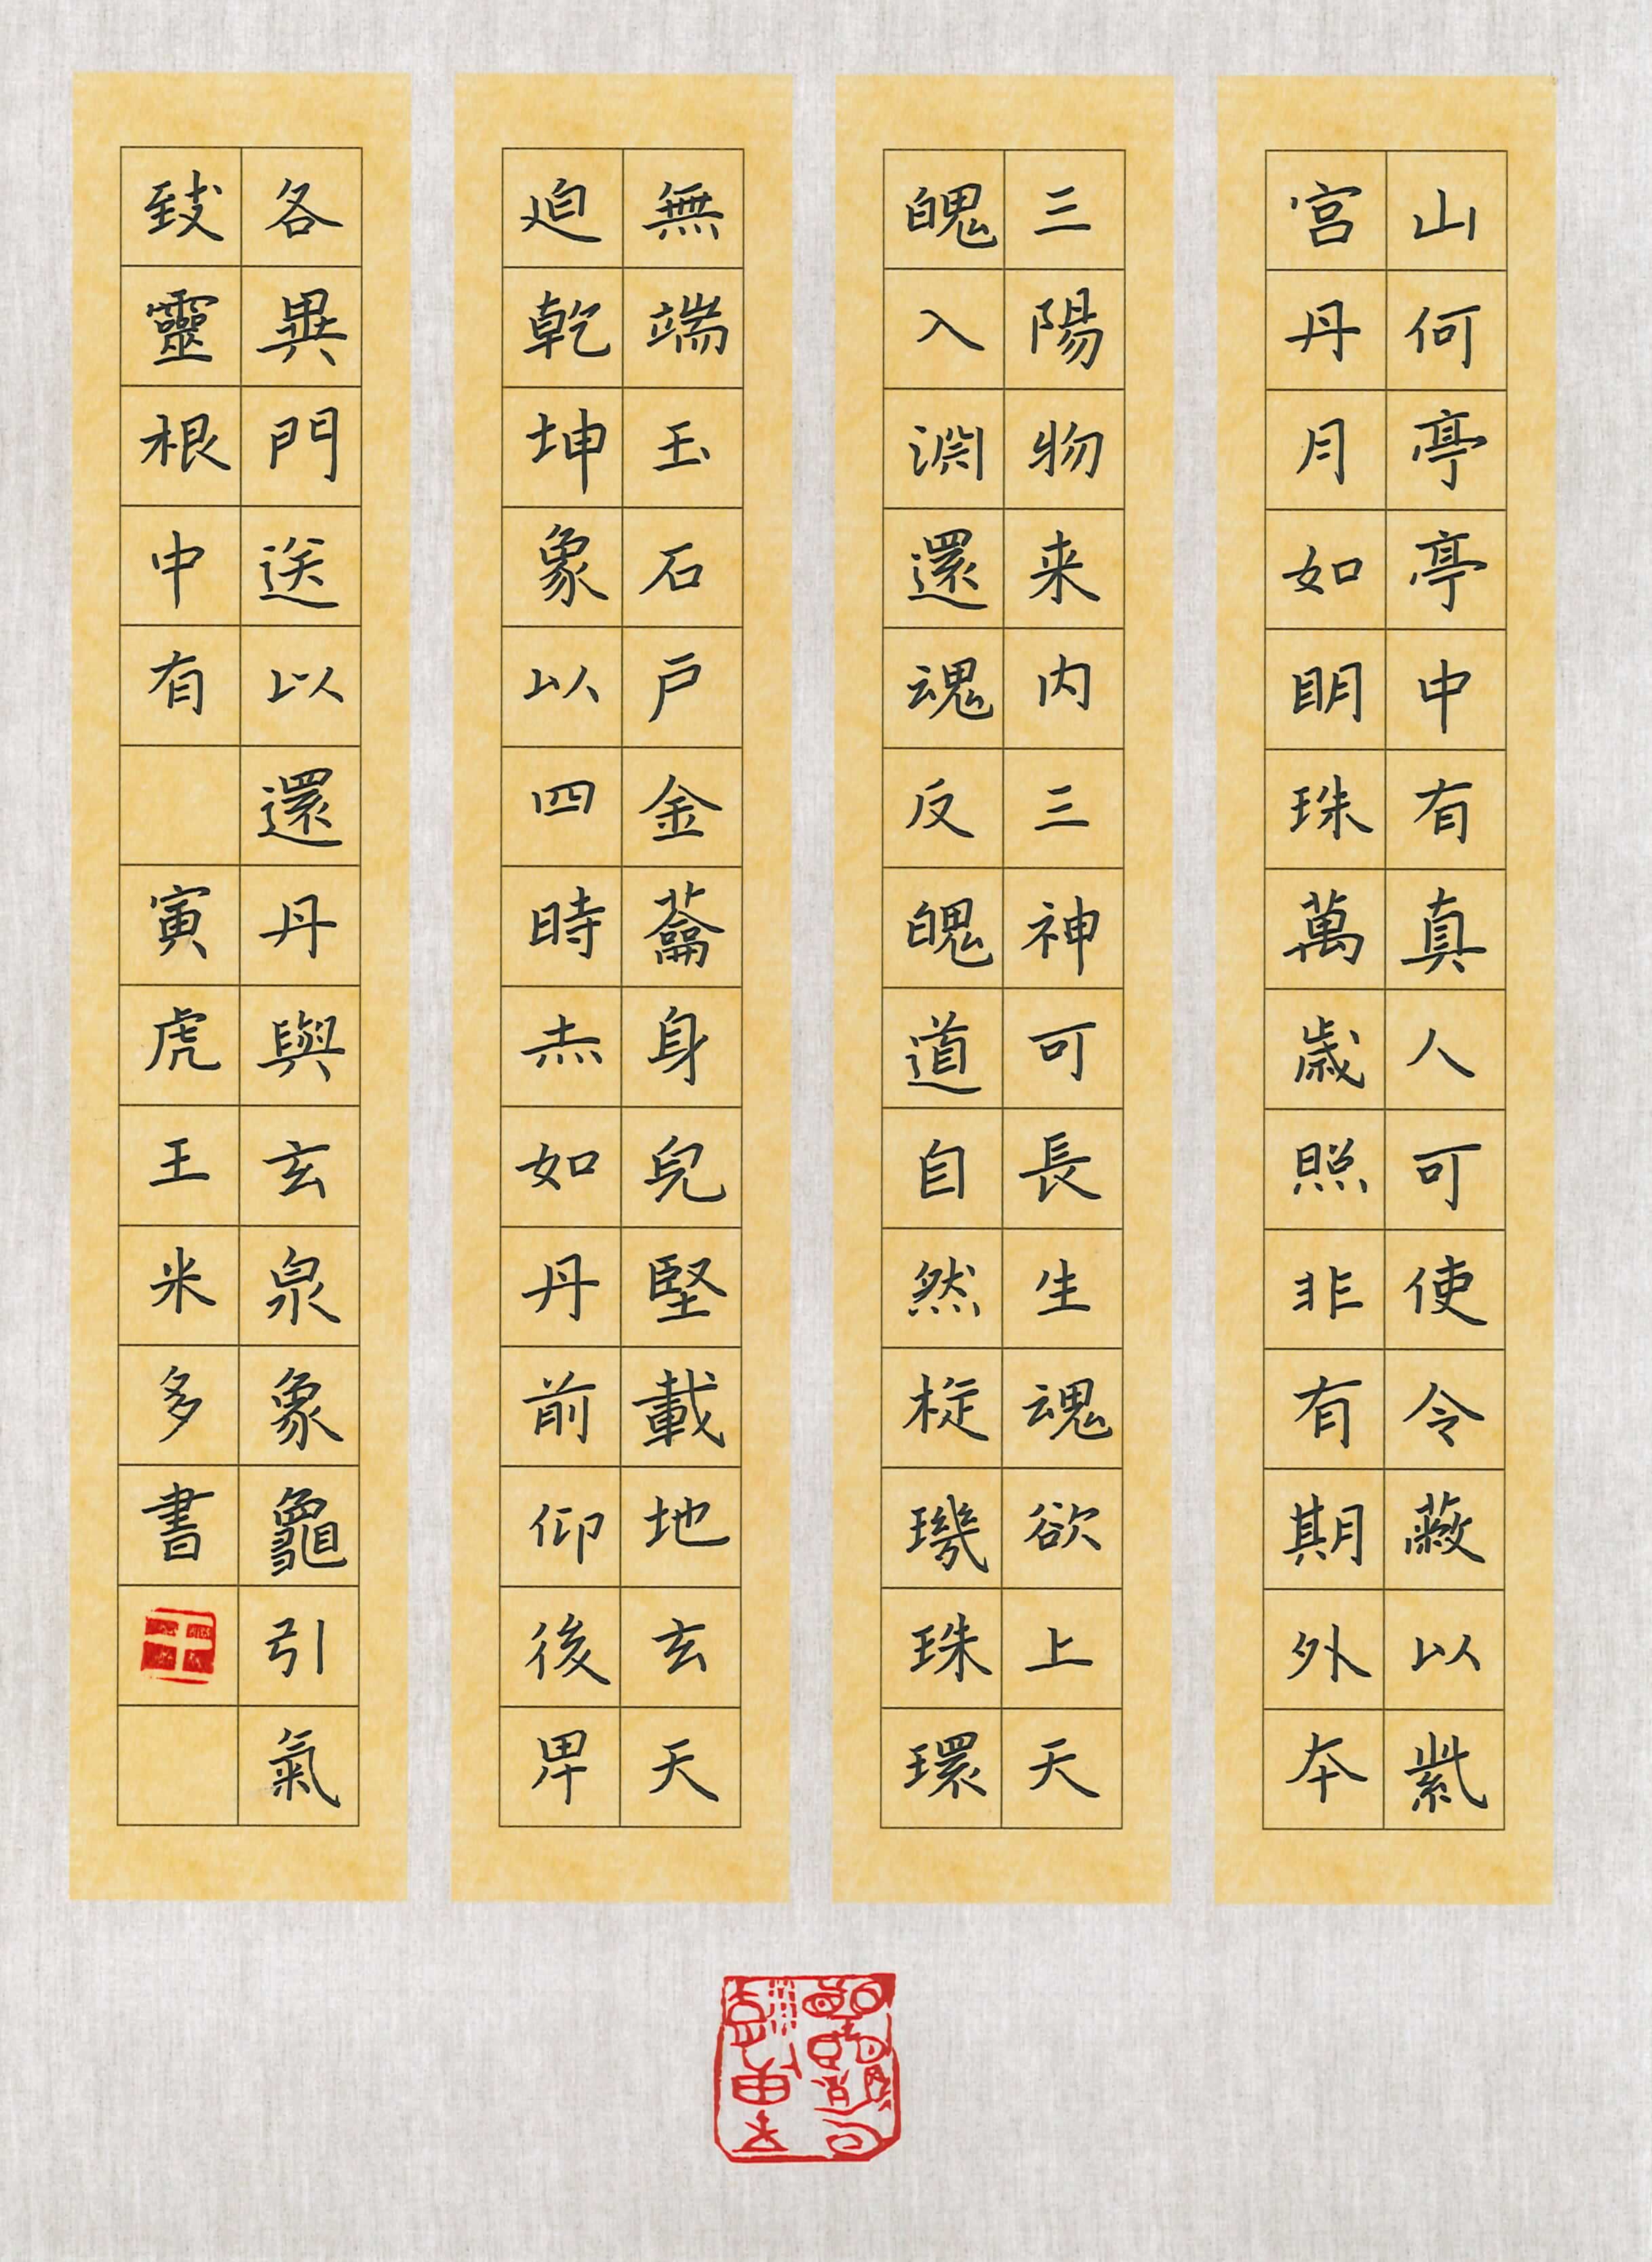 山何亭亭中有真人可使令蔽以紫
宫丹月如眀珠萬歲照非有期外本
三陽物来内三神可長生魂欲上天
魄入渊還魂反魄道自然旋璣珠環
無端玉石户金蘥身完堅載地玄天
迫乾坤象以四時赤如丹前仰後卑
各異門送以還丹與玄泉象龜引氣
致靈根中有 寅虎王米多書